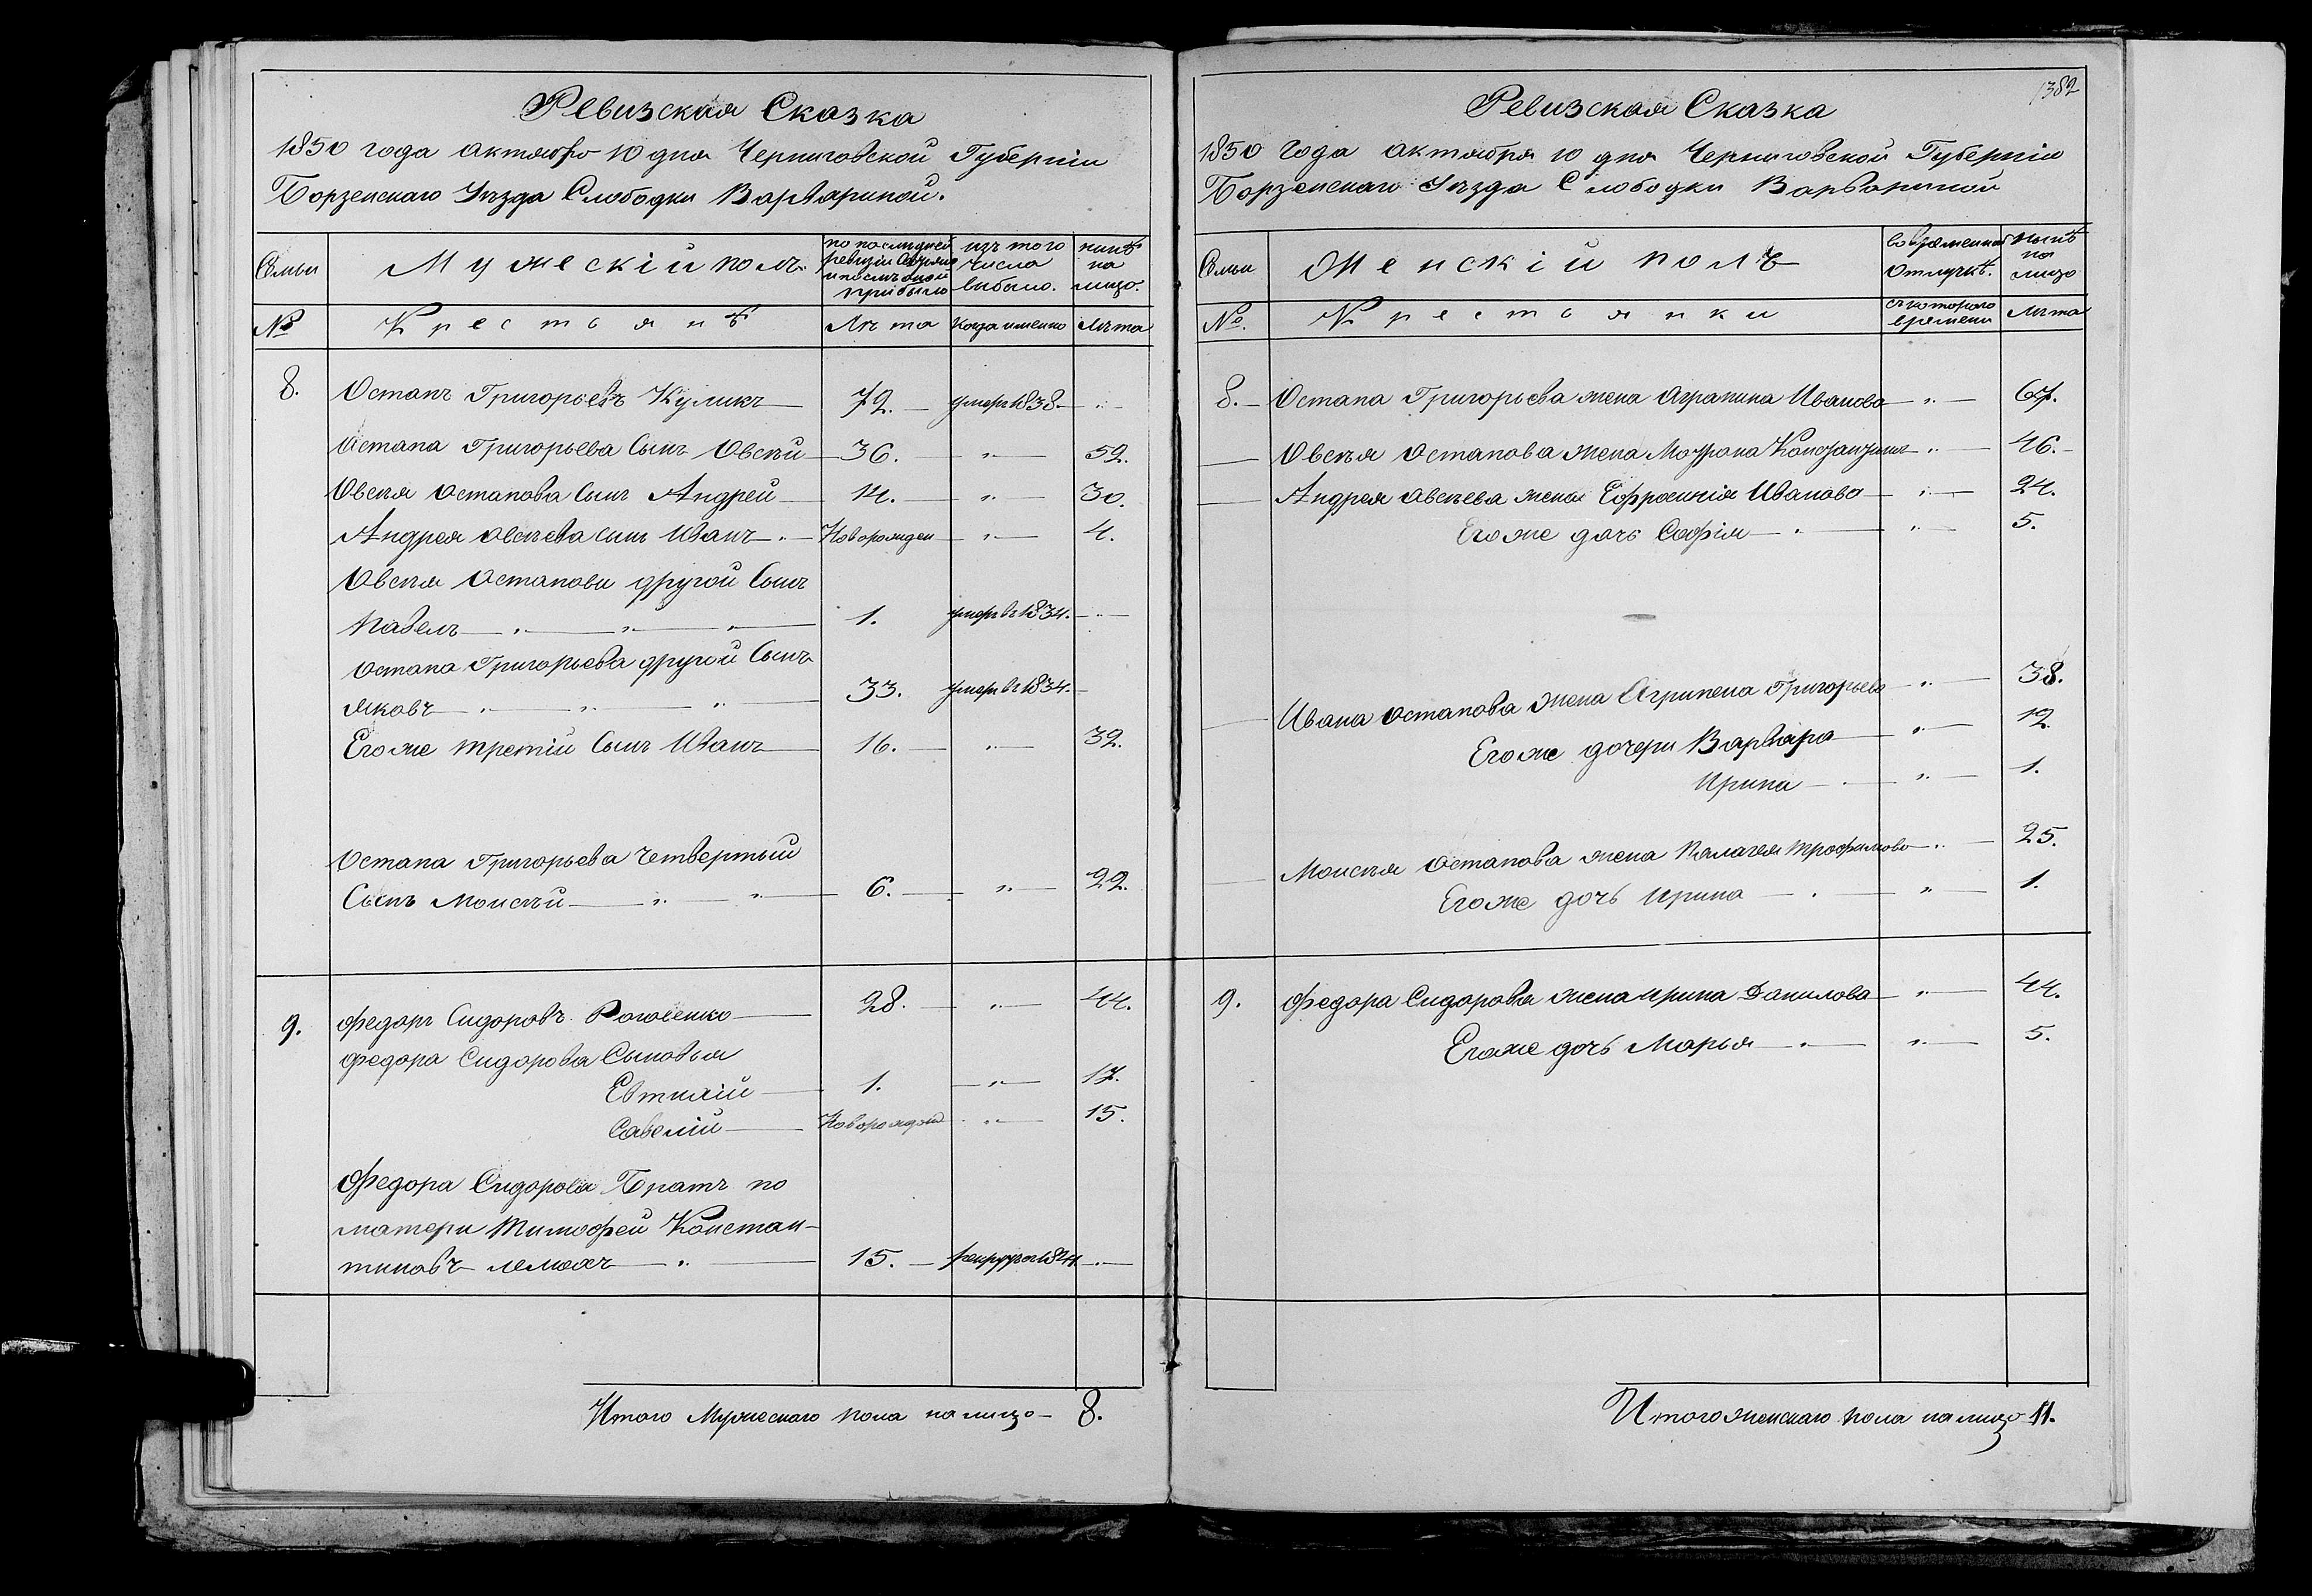 Ревизская Сказка
1850 года октября 10 дня Черниговской Губерніи
Борзенскаго Уѣзда Слободки Варвариной.
Семьи
Мужескій полъ.
по последней ревизіи состояло и после оной прибыло
изъ того числа выбыло.
нынѣ на лицо.
№
Крестьянѣ
Лѣта
Когда именно
Лѣта
8. Остапъ Григорьевъ Куликъ 72. умеръ 1838.
Остапа Григорьева Сынъ Овсѣй 36. 52.
Овсѣя Остапова Сынъ Андрей 14. 30.
Андрея Овсѣева сынъ Иванъ Новорожден 4.
Овсѣя Остапова другой Сынъ
Павелъ 1. умеръ въ 1834.
Остапа Григорьева другой Сынъ
Яковъ 33. умеръ въ 1834.
Его же третій Сынъ Иванъ 16. 32.
Остапа Григорьева четвертый
Сынъ Моисѣй 6. 22.
9. Федоръ Сидоровъ 28. 44.
Федора Сидорова Сыновья
Евтихій 1. 17.
Савелій Новорожден 15.
Федора Сидорова Братъ по
матери Тимофей Констан-
тиновъ 15. 
Итого Мужескаго пола на лицо - 8.
1382
Ревизская Сказка
1850 года октября 10 дня Черниговской Губерніи
Борзенскаго Уѣзда Слободки Варвариной
Семьи
Женскій полъ
во временной отлучкѣ.
нынѣ на лицо
№.
Крестьянки
съ котораго времени
Лѣта
8. Остапа Григорьева жена Аграпина Иванова 67.
Овсѣя Остапова жена Мотрона 46.
Андрея Овсѣева жена Ефросинія Иванова 24.
Его же дочь Софія 5.
Ивана Остапова жена Агрипена Григорьева 38.
Его же дочери Варвара 12.
Ирина 1.
Моисѣя Остапова жена Палагея Трофимова 25.
Его же дочь Ирина 1.
9. Федора Сидорова жена Ирина Данилова 44.
Его же дочь Марья 5.
Итого женскаго пола на лицо 11.